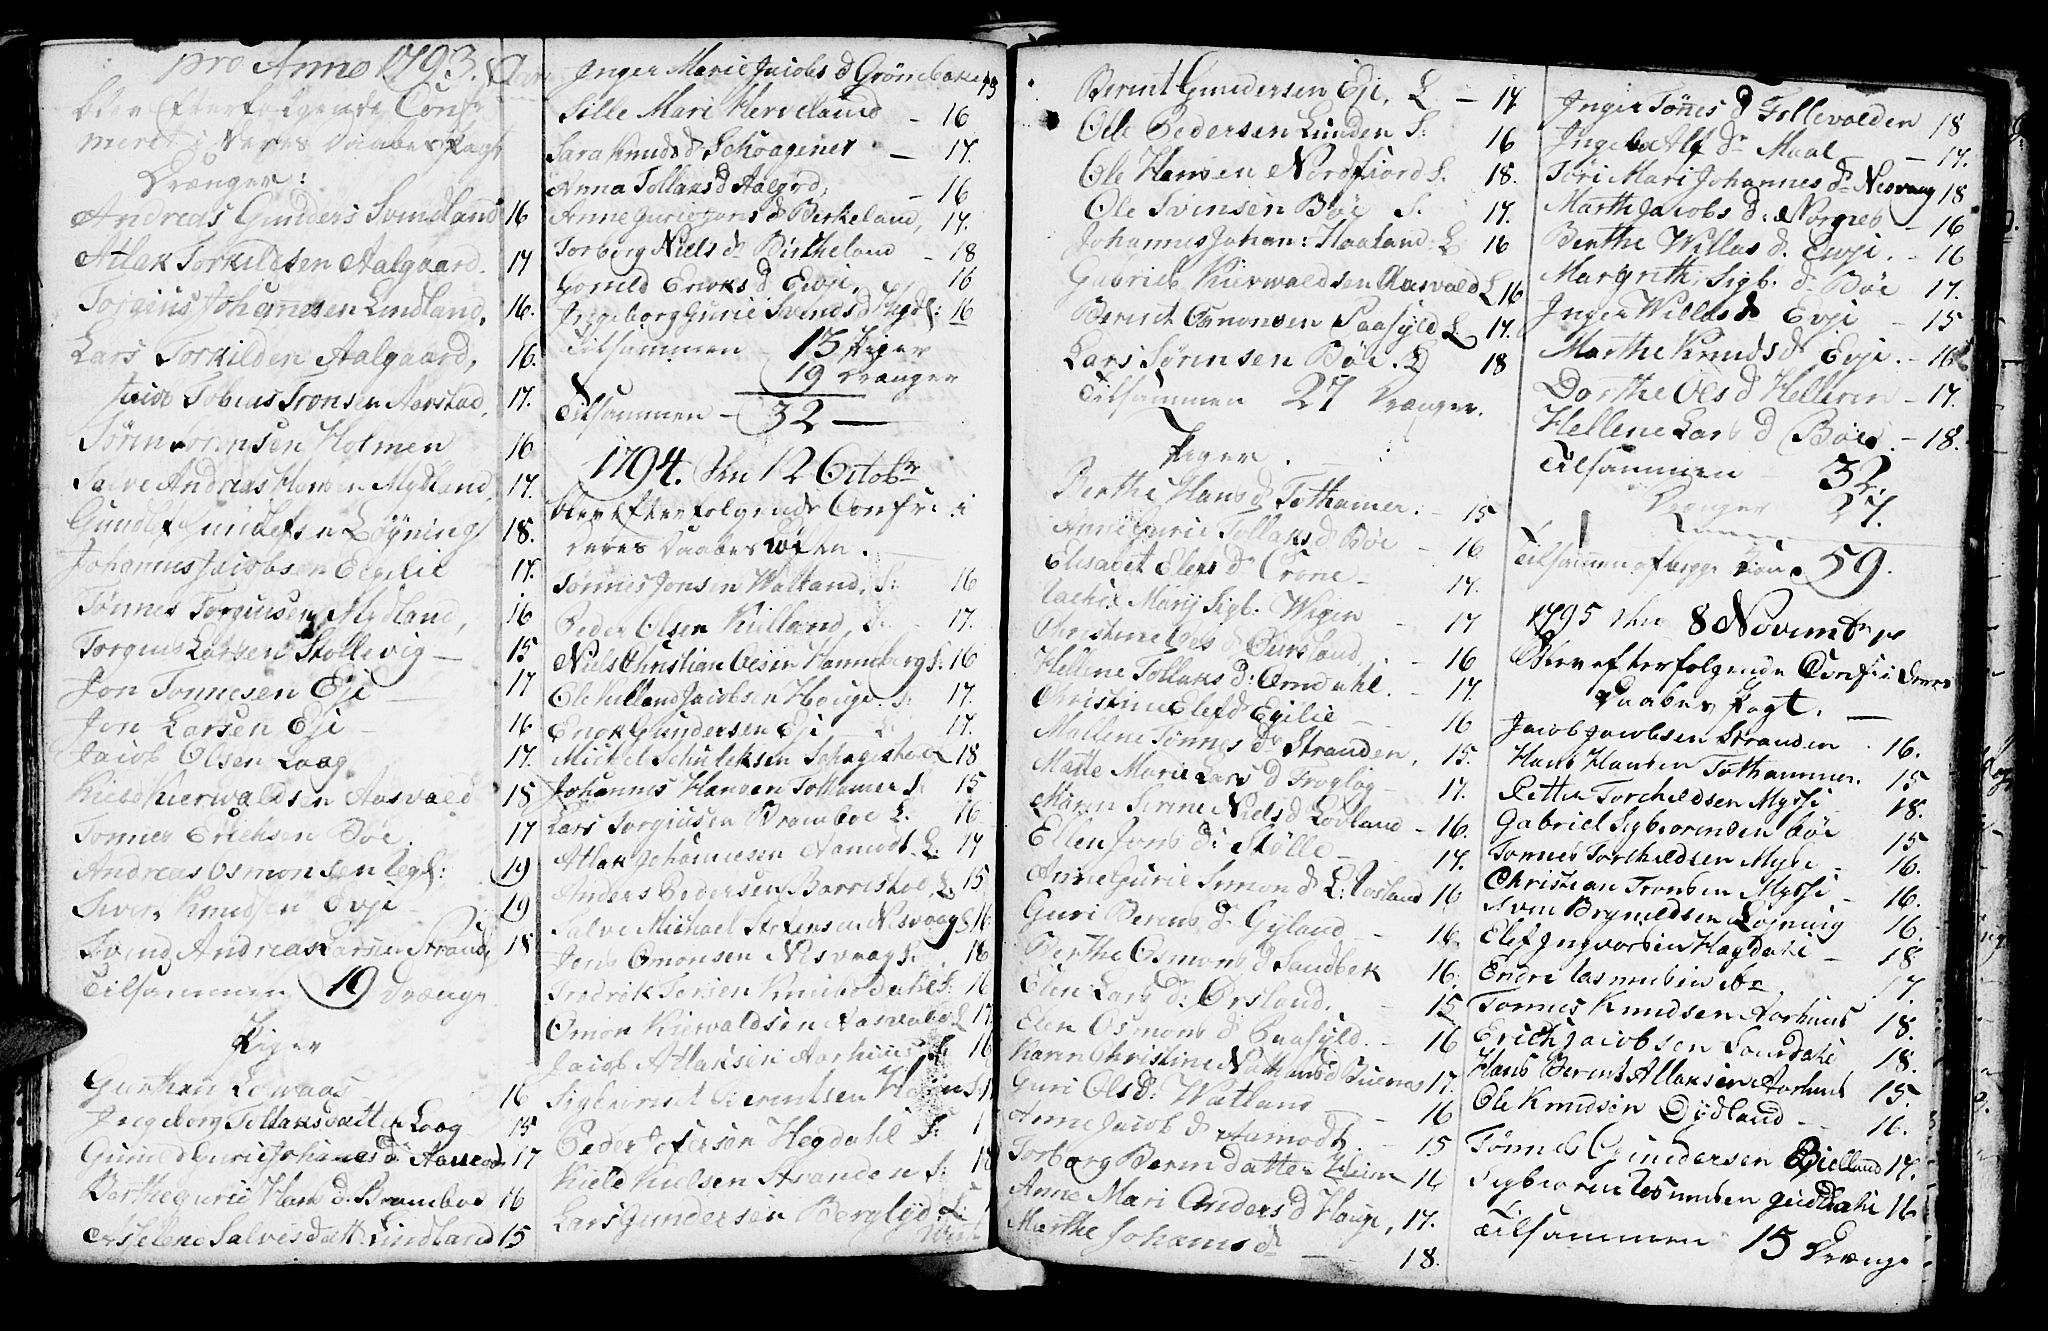 pro Anno 1793.
blev Efterfølgende Confir
meret i Deres Daabes Pagt
Drænger:
Andreas Gunders Svindland 16
Atlak Torkildsen Aalgaard. 17
Torgius Johannesen Lindland, 16.
Lars Torkildsen Aalgaard, 16.
Tobias Tronsen Aarstad, 17.
Sören Sörensen Holmen 16
Salve Andreas Hansen Mydland, 17.
Gundlef Gundlefsen Löyning 18.
Johannes Jacobsen Egelie 17.
Tönnes Torgiusen Mydland, 16
Torgius Larsen Stollevig — 15
Jon Tönnesen Eje — 17
Jon Larsen Eje — 16
Jacob Olsen Laag 17.
Kield Kierwaldsen Aasvald 18
Tönnes Erichsen Böe. 17
Andreas Osmonsen Egel: 19
Siver Knudsen Evje — 19
Svend Andreas Larsen Strand 18
Tilsammen 19 Drænge
Piger
16
Ingeborg Tollaksdatter Laag 15
Gunild Gurie Johannes d: Aamod 17
Berthe Gurie Hans d. Bramboe 16
Helene Salves datt Lindland 15
Inger Marie Jacobs d Grönebake 13
Sille Mari Herveland — 16
Sara Knuds d Schoagener — 17.
Anna Tollaks d Aalgrd, — 16
Anne Gurie d Berkeland, 17.
Torberg Niels dr Birkeland — 18
Gonild Eriks d Evje, 16
Ingeborg Gurie Svends d Hgdl: 16
Tilsammen — 15 Piger
19 Drænger
Tilsammen — 32 —
1794. den 12 Octobr
blev Efterfølgende Confr: i
deres Daabes Pagt. —
Tönnes Jonsen Watland, S: 16
Peder Olsen Kielland, 17.
Niels Christian Olsen Hanneberg S: 16
Ole Helland Jacobsen Houge. S: 17.
Enok Gundersen Eje L: 17.
Mickel Schuleksen 18
Johannes Hansen Tothamer S: 15
Lars Torgiusen Bramboe L. 16
Atlak Johannesen Aamodt L. 17
Anders Pedersen Barrestad L. 15
Salve Michael Stefensen Nesvaag S 16
Jens Omonsen Nesvaag S. 18
Fredrik Jensen Knibedahl S: 16
Omon Kierwaldsen Aasvald L 17
Jacob Atlaksen Aarhuus S: 16
Sigbiörnt Berentsen
Peder Pedersen Hegdahl S:
Kield Kielsen Stranden S: 18
Lars Gundersen Berglyd, L:
Berent Gundersen Eje, L — 17
Ole Pedersen Lunden S: 16
Ole Hansen Nordfiord S. 18.
Ole Svensen Böe S. 17.
Johannes Johan: Haaland: L 16
Gabriel Kierwaldsen Aasvald L 16
Berent Osmonsen Paafyld L 17.
Lars Sörensen Böe. L 18
Tilsammen 27 Drænger.
Piger.
Berthe Hans d Tothamer. — 15
Anne Gurie Tollaks d Böe — 16
Elisabet Elevs dr Crone — 17.
Rachel Marij Sigb. Wigen — 17
Christine Ols d Oursland. — 16
Hellene Tollaks d: Omdahl. — 17
Christine Elefs d Egilie — 16
Mallene Tönnes dr Stranden, 15.
Mette Marie Lars d Froglög — 17.
Maren Serine Niels d Lovland — 16.
Ellen Jons d: Stölle — 17.
Anne Gurie Simon d L: Rosland 16
Guri Berens dr Gyland — 16
Berthe Osmons d Sandbek 16.
Elen Lars d: Örsland. — 15
Elen Osmons d Paafyld. — 16
Karen Christine Nathans d Buenes 17.
Guri Ols d: Watland — 16
Anne Jacob d Aamodt. — 15
Torborg Beren datter 16
Anne Mari Anders d Houge, 17.
Marthe Johans d — 18.
Inger Tönes d Follevolden 18
Ingeb. Alf dr Maal — 17.
Töri Mari Johannes dr Nesvaag 18
Marthe Jacobs d: Norges — 16
Berthe Willas d. Evje. — 16
Margrethe Sigb. d. Böe 17.
Inger Willas d Evje — 15
Marthe Knuds d Evje. — 16
Dorthe Ols d Helleren — 17.
Hellene Lars d Böe. — 18.
Tilsammen — 32.
Drænger 27.
Tilsammen af begge Kiön 59.
1795 den 8 Novembr
Blev efterfølgende Conf: i deres
Daabes Pagt. —
Jacob Jacobsen Stranden. 16.
Hans Hansen Tothammer. 15
Petter Torchildsen Mysse — 18.
Gabriel Sigbiorensen böe 15
Tönnes Torchildsen Myse — 16.
Christian Tronsen Mysse — 16.
Sven Brynildsen Löyning 16.
Elef Ingvorsen Hagdahl — 18
Endre Rasmusen 17.
Tönnes Knudsen Aarhuus 18.
Erich Jacobsen Lourdahl 18.
Hans Berent Atlaksen Aarhuus 15.
Ole Knudsen Dydland — 16.
Tönnes Gundersen Bielland 17.
Sigbiören Rasmusen Gudsdahl 16
Tilsammen 15 Drænge